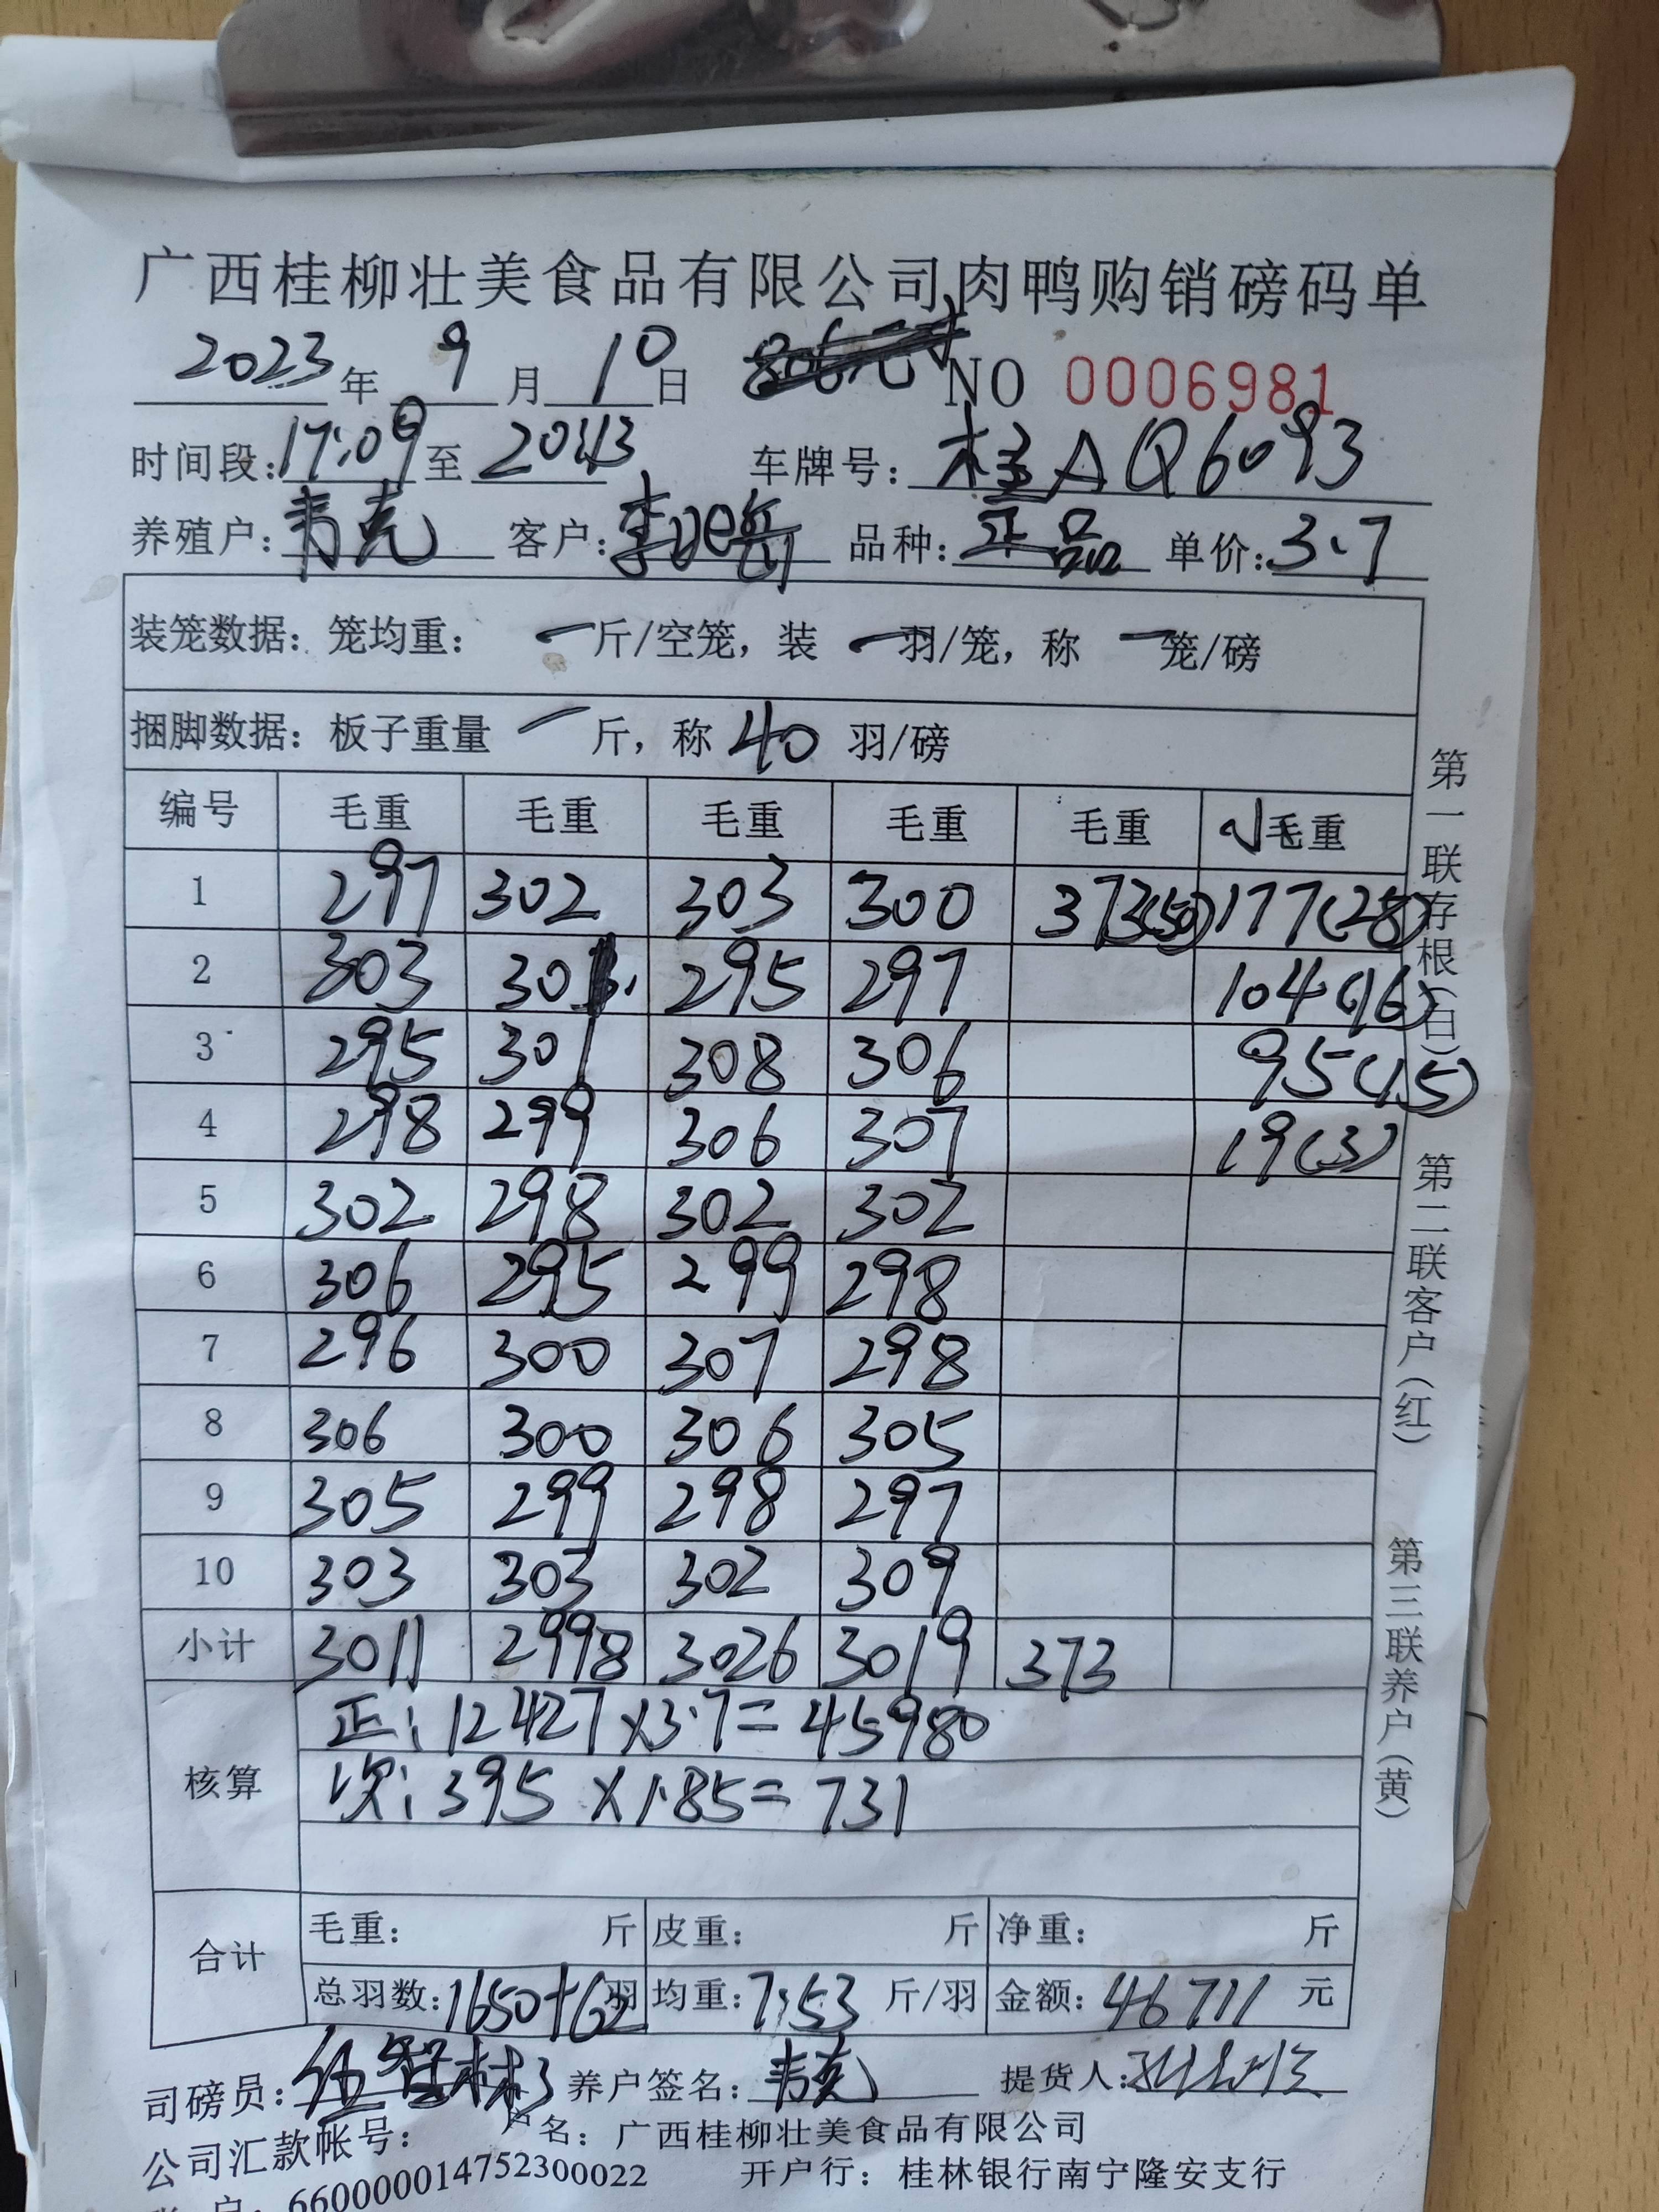 广西桂柳壮美食品有限公司肉鸭购销磅码单
2023年 9月 10日 NO 0006981
时间段: 17:09 至 20:43 车牌号: 桂AQ6093
养殖户: 韦克 客户: 品种: 正品 单价: 3.7
装笼数据: 笼均重: 一 斤/空笼, 装 一 羽/笼, 称 一 笼/磅
捆脚数据: 板子重量 一 斤, 称 40 羽/磅
编号 毛重 毛重 毛重 毛重 毛重 小毛重
1 297 302 303 300 373(50) 177(28)
2 303 301 295 297 104(16)
3 295 301 308 306 95(15)
4 298 299 306 307 19(3)
5 302 298 302 302
6 306 295 299 298
7 296 300 307 298
8 306 300 306 305
9 305 299 298 297
10 303 303 302 309
小计 3011 2998 3026 3019 373
核算 正: 12427×3.7=45980
次: 395×1.85=731
合计 毛重: 斤 皮重: 斤 净重: 斤
总羽数: 1650+62 羽 均重: 7.53 斤/羽 金额: 46711 元
司磅员: 养户签名: 韦克 提货人:
公司汇款帐号: 户名: 广西桂柳壮美食品有限公司
户: 660000014752300022 开户行: 桂林银行南宁隆安支行
第一联存根(白) 第二联客户(红) 第三联养户(黄)